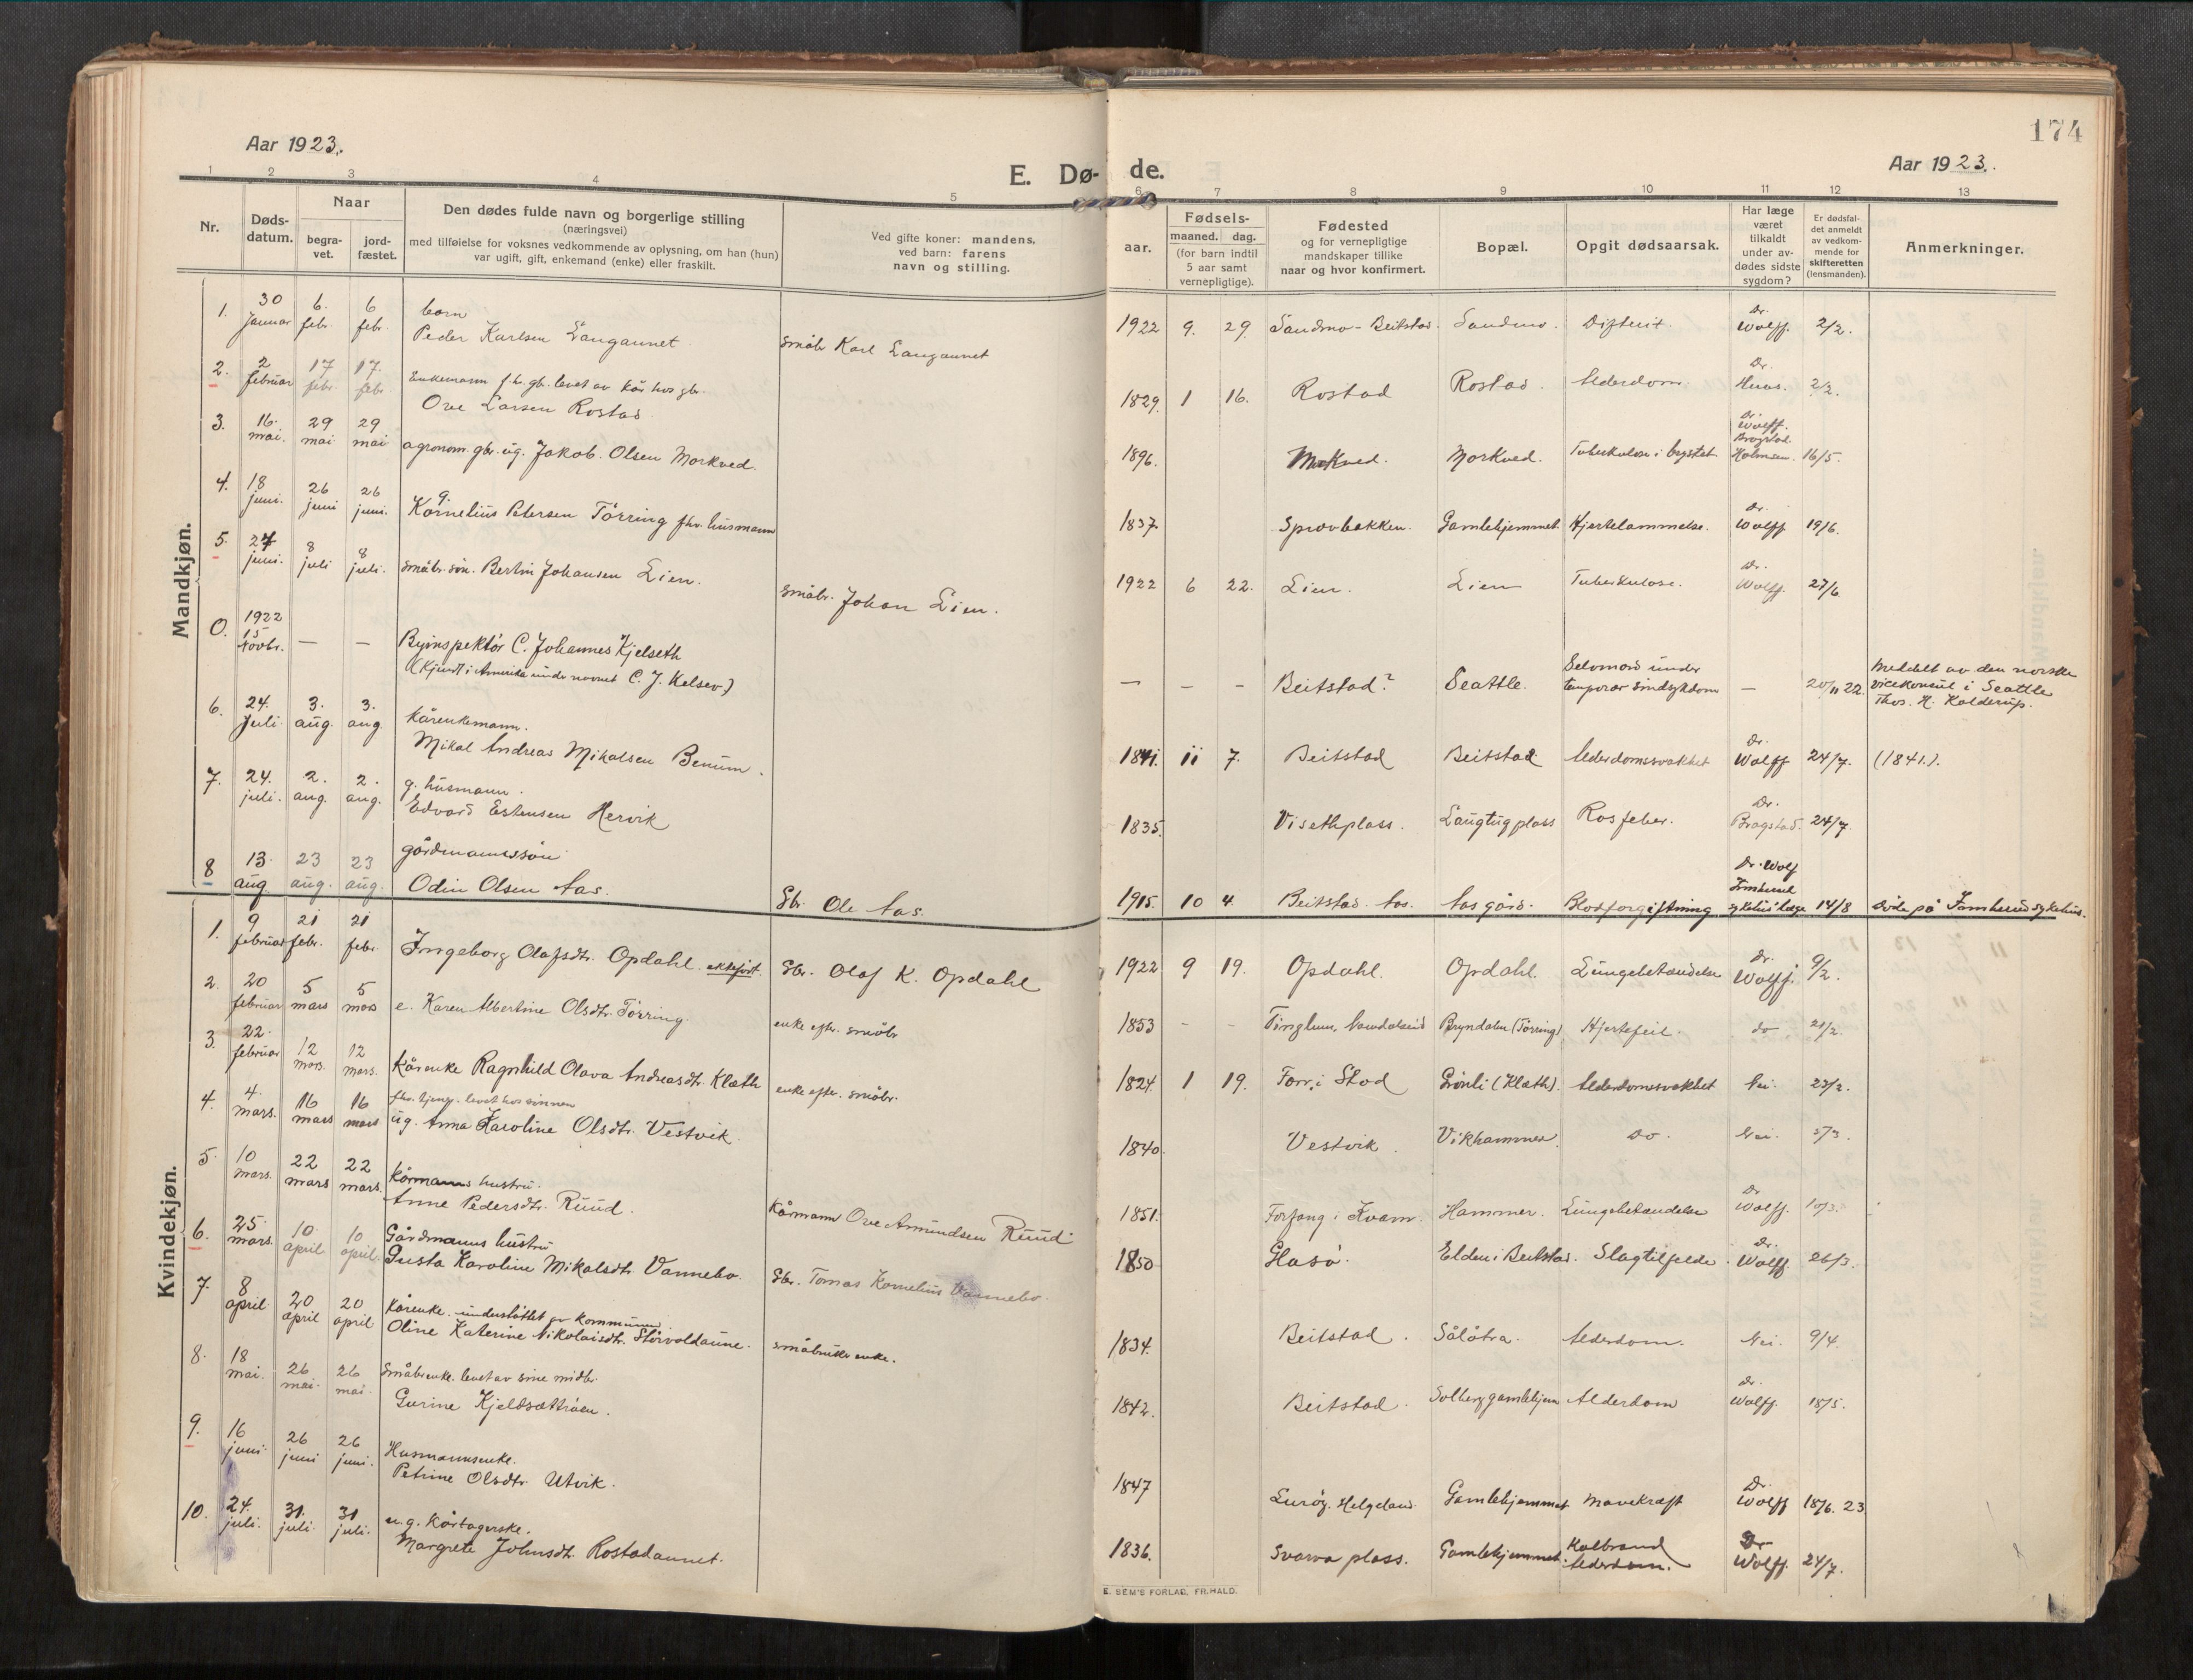 174
Aar 1923.
Aar 1923.
E. Dø-
de.
1 2 3 4 5 6 7 8 9 10 11 12 13
Nr.
Døds-
datum.
Naar
begra-
vet.
jord-
fæstet.
Den dødes fulde navn og borgerlige stilling
(næringsvei)
med tilføielse for voksnes vedkommende av oplysning, om han (hun)
var ugift, gift, enkemand (enke) eller fraskilt.
Ved gifte koner: mandens,
ved barn: farens
navn og stilling.
aar.
Fødsels-
maaned. dag.
(for barn indtil
5 aar samt
vernepligtige).
Fødested
og for vernepligtige
mandskaper tillike
naar og hvor konfirmert.
Bopæl.
Opgit dødsaarsak.
Har læge
været
tilkaldt
under av-
dødes sidste
sygdom?
Er dødsfal-
det anmeldt
av vedkom-
mende for
skifteretten
(lensmanden).
Anmerkninger.
Mandkjøn.
1. 30 Januar 6. febr. 6 febr. barn
Peder Karlsen Langaunet. småbr Karl Langaunet 1922 9. 29. Sandmo - Beitstad. Sandmo. Difterit. Dr. Wolff. 2/2.
2. 2 februar 17 febr. 17. febr. Enkemann fh. gbr. levet av kår hos gbr.
Ove Larsen Rostad. 1829. 1 16. Rostad Rostad. Alderdom. Dr. 2/2.
3. 16. mai. 29 mai 29 mai agronom. gbr. ug. Jakob Olsen Morkved. 1896. Morkved. Morkved. Tuberkulose i brystet Dr. Wolff. Bragstad. Holmsen. 16/5.
4. 18 juni. 26 juni 26 juni. g.
Kornelius Petersen Tørring fhv. husmann 1837. Sprovbakken. Gamlehjemmet Hjertelammelse. Dr. Wolff 19/6.
5. 27 juni. 8 juli 8 juli. småbr. søn. Bertin Johansen Lien. småbr. Johan Lien. 1922 6 22. Lien. Lien Tuberkulose. Dr. Wolff. 27/6
0. 1922 15 Novbr. — — Byinspektør C. Johannes Kjelseth
(Kjendt i Amerika under navnet C. J. Kelsev.) — - - Beitstad? Seattle. Selvmord under
temporær sindsykdom — 20/11 22. Meddelt av den norske
vicekonsul i Seattle
Thos. H. Kolderup.
6. 24. Juli. 3. aug. 3. aug. kårenkemann.
Mikal Andreas Mikalsen Benum. 1841. 11 7. Beitstad Beitstad. Alderdomssvakhet Dr. Wolff 24/7. (1841.).
7. 24. juli. 2. aug. 2. aug. g. husmann.
Edvard Estensen Hervik 1835. Visethplass. Langtugplass Rosfeber. Dr. Bragstad. 24/7.
8 13. aug. 23 aug. 23 aug. gårdmannssøn
Odin Olsen Aas. Gbr. Ole Aas. 1915. 10 4. Beitstad. Aas. Aas gård. Blodforgiftning Dr. Wolf
sykehus' læge 14/8 døde på sykehus.
Kvindekjøn.
1. 9 februar 21 febr. 21 febr. Ingeborg Olafsdtr. Opdahl. Gbr. Olaf K. Opdahl 1922 9 19. Opdahl. Opdahl. Lungebetændelse Dr. Wolff. 9/2.
2. 20 februar 5 mars 5 mars e. Karen Albertine Olsdtr. Tørring. enke efter. småbr 1853 - - Tinglum, Namdalseid Bryndalen (Tørring) Hjertefeil. do 21/2.
3. 22. februar 12 mars. 12 mars. Kårenke Ragnhild Olava Andreasdtr. Klæth enke efter. småbr. 1824. 1 19. i Stod Grønli (Klæth). Alderdomssvakhet Nei. 23/2.
4. 4. mars. 16 mars 16 mars fhv. tjeng. levet hos sønnen
ug. Anna Karoline Olsdtr. Vestvik. 1840. Vestvik. Vikhammer. do. Nei. 5/3.
5. 10 mars. 22 mars 22 mars. Kårmanns hustru.
Anne Pedersdtr. Ruud. Kårmann Ove Amundsen Ruud 1851. Forfang i Kvam. Hammer. Lungebetændelse Dr Wolff. 10/3.
6. 25 mars. 10 april 10 april. Gårdmanns hustru
Gusta Karoline Mikalsdtr Vannebo. Gbr. Tomas Kornelius Vannebo. 1850 Glasø. Elden i Beitstad. Slagtilfelde. Dr. Wolff. 26/3.
7. 8 april 20 april 20 april Kårenke. understøttet av kommunen.
Oline Katerine Nikolaisdtr. Storvoldaune. småbruker enke. 1834. Beitstad. Såløtra. Alderdom. Nei. 9/4.
8. 18 mai. 26 mai. 26 mai. Småbr. enke. levet av sine midler.
Gurine Kjeldsætrøen. 1842. Beitstad. Solberg gamlehjem Alderdom Dr. Wolff. 18/5.
9. 16 juni. 26 juni 26 juni. Husmannsenke.
Petrine Olsdtr. Utvik. 1847 Lurøy. Helgeland Gamlehjemmet. Mavekræft Dr. Wolff 18/6. 23
10. 24. juli. 31. juli. 31 juli. u. g. Kårtagerske.
Margrete Johnsdtr. Rostadaunet. 1836. Svarva plass. Gamlehjemmet. Kolbrand
Alderdom. Dr Wolff. 24/7.
E. SEM'S FORLAG, FR.HALD.